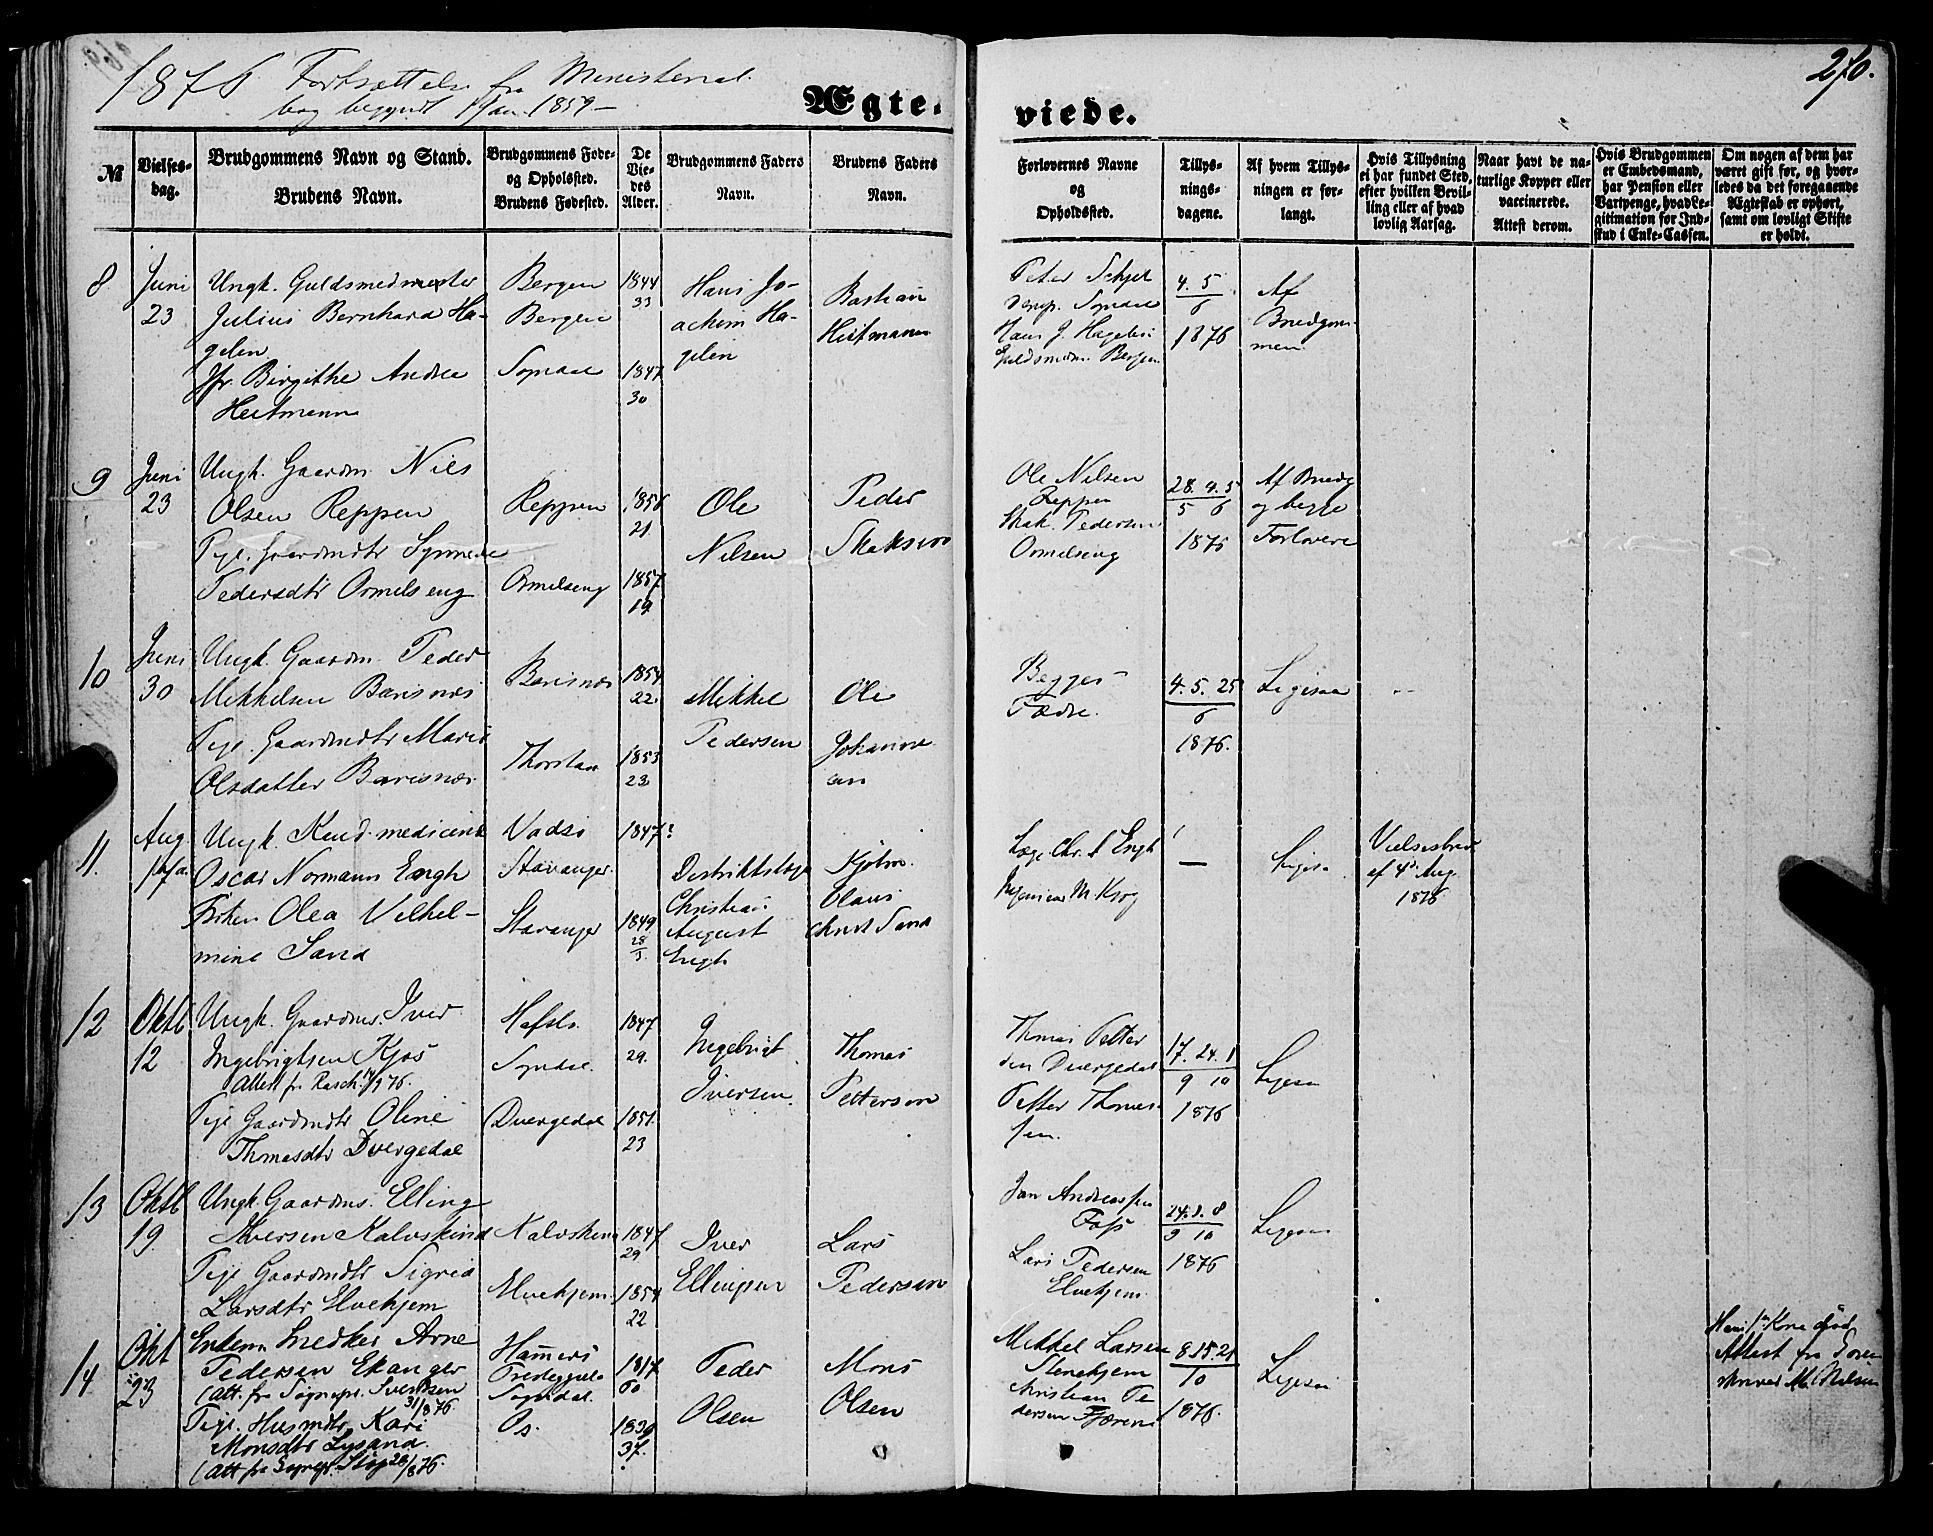 270.
1876 Fortsættelse fra Ministerial
bog begyndt 1 Jan. 1859 —
Ægte-
viede.
№
Vielses-
dag.
Brudgommens Navn og Stand.
Brudens Navn.
Brudgommens Føde-
og Opholdssted.
Brudens Fødested.
De
Vie-
des
Alder.
Brudgommens Faders
Navn.
Brudens Faders
Navn.
Forlovernes Navne
og
Opholdssted.
Tillys-
nings-
dagene.
Af hvem Tillys-
ningen er for-
langt.
Hvis Tillysning
ei har fundet Sted,
efter hvilken Bevil-
ling eller af hvad
lovlig Aarsag.
Naar havt de na-
turlige Kopper eller
vaccinerede.
Attest derom.
Hvis Brudgommen
er Embedsmand,
har Pension eller
Vartpenge, hvad Le-
gitimation for Ind-
skud i Enke-Cassen.
Om nogen af dem har
været gift før, og hvor-
ledes da det foregaaende
Ægteskab er ophørt,
samt om lovligt Skifte
er holdt.
8
Juni
23
Ungk. Guldsmedmester
Julius Bernhard Ha-
gelin
Jfr. Birgithe Andrea
Heitmann
Bergen
Bergen
Sogndal
1844
33
1847
30
Hans Jo-
achim Ha-
gelin
Bastian
Heitmann
Peter Schjel
derup. Sogndal
Hans J. Hagelin
Guldsmedm. Bergen
4. 5
6
1876
Af
Brudgom-
men.
9
Juni
23
Ungk. Gaardm. Nils
Olsen Reppen
Pige. Gaardmdtr Synneve
Pedersdtr Ormelseng
Reppen
Ormelseng
1856
21
1857
19
Ole
Nilsen
Peder
Ole Nilsen
Reppen
Pedersen
Ormelseng
28. 4. 5
5 6
1876
Af Brudg
og begge
Forlovere
10
Juni
30
Ungk. Gaardm. Peder
Mikkelsen Barisnæs
Pige. Gaardmdtr Mari
Olsdatter Barisnæs
Barisnæs
Thorstad
1854
22
1853
23
Mikkel
Pedersen
Ole
Begges
Fædre.
4. 5. 25
6
1876.
Ligesaa
11.
Aug
Ungk. Kand. medicin
Oscar Normann Engh
Frøken Olea Vilhel-
mine Sand
Vadsø
Stavanger
Stavanger
1847?
1849
Distriktslæge
Christian
August
Engh
Claus
Sand
Læge Chr. A Engh
Ingeniør M Krog
—
Ligesaa
Vielsesbrev
af 4de Aug.
1876
12
Oktb
12
Ungk. Gaardm. Iver
Ingebrigtsen Kjos
Pige Gaardmdtr Oline
Thomasdtr Dvergedal
Hafslo
Sogndal.
Dvergedal
1847
29.
1851.
23
Ingebrigt
Iversen.
Thomas
Pettersen
Thomas Petter
sen Dvergedal
Petter Thomas-
sen.
17. 24. 1
9 10
1876
Ligesaa
13
Oktb
19.
Ungk. Gaardms. Elling
Iversen Kalvskind
Pige Gaardmdtr Sigrid
Larsdtr Elvehjem
Kalvskind
Elvehjem.
1847
29
1854
22
Iver
Ellingsen
Lars
Pedersen
Jon Andreassen
Foss
Lars Pedersen
Elvehjem.
24. 1. 8
9 10
1876
Ligesaa
14
Okt
23
Enkem. Snedker Arne
Pedersen Ekanger
31/8 76
Pige. Husmdtr Kari
Monsdtr Lysand.
Sogndal.
1817
60
1839
37.
Peder
Olsen
Mons
Olsen
Mikkel Larsen
Stenehjem
Christian Pe
dersen
8. 15. 21
10
1876.
Ligesaa
Kone død
Attest fra Soren
skriver M. Nilsen